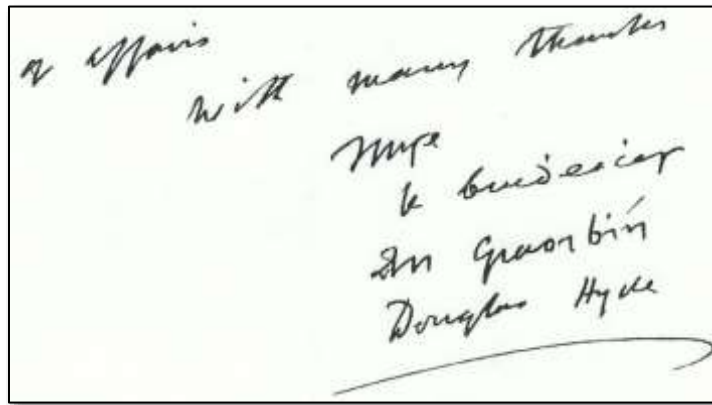 of affairs
with many thanks
Mise
le buideacas
An Craoibín
Douglas Hyde